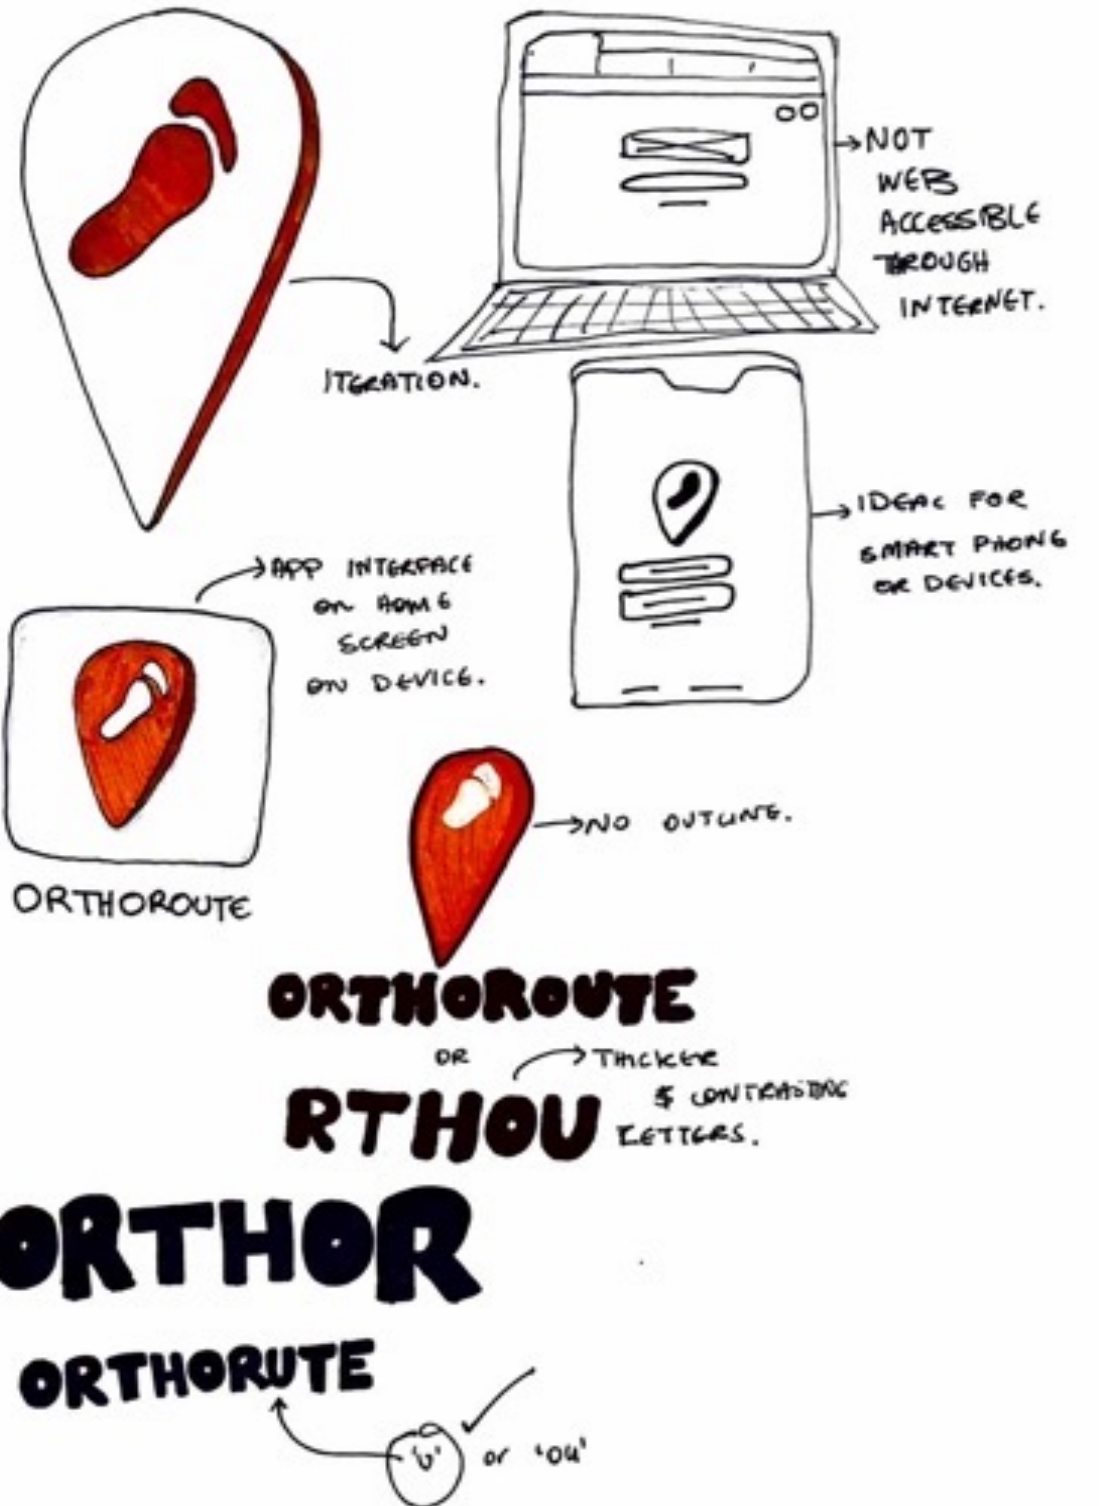 NOT
WEB
ACCESSIBLE
THROUGH
INTERNET.
ITERATION.
IDEAL FOR
SMART PHONE
OR DEVICES.
APP INTERFACE
ON HOME
SCREEN
ON DEVICE.
NO OUTLINE.
ORTHOROUTE
ORTHOROUTE
OR
THICKER
& CONTRASTING
LETTERS.
RTHOU
ORTHOR
ORTHORUTE
'U' or 'OU'